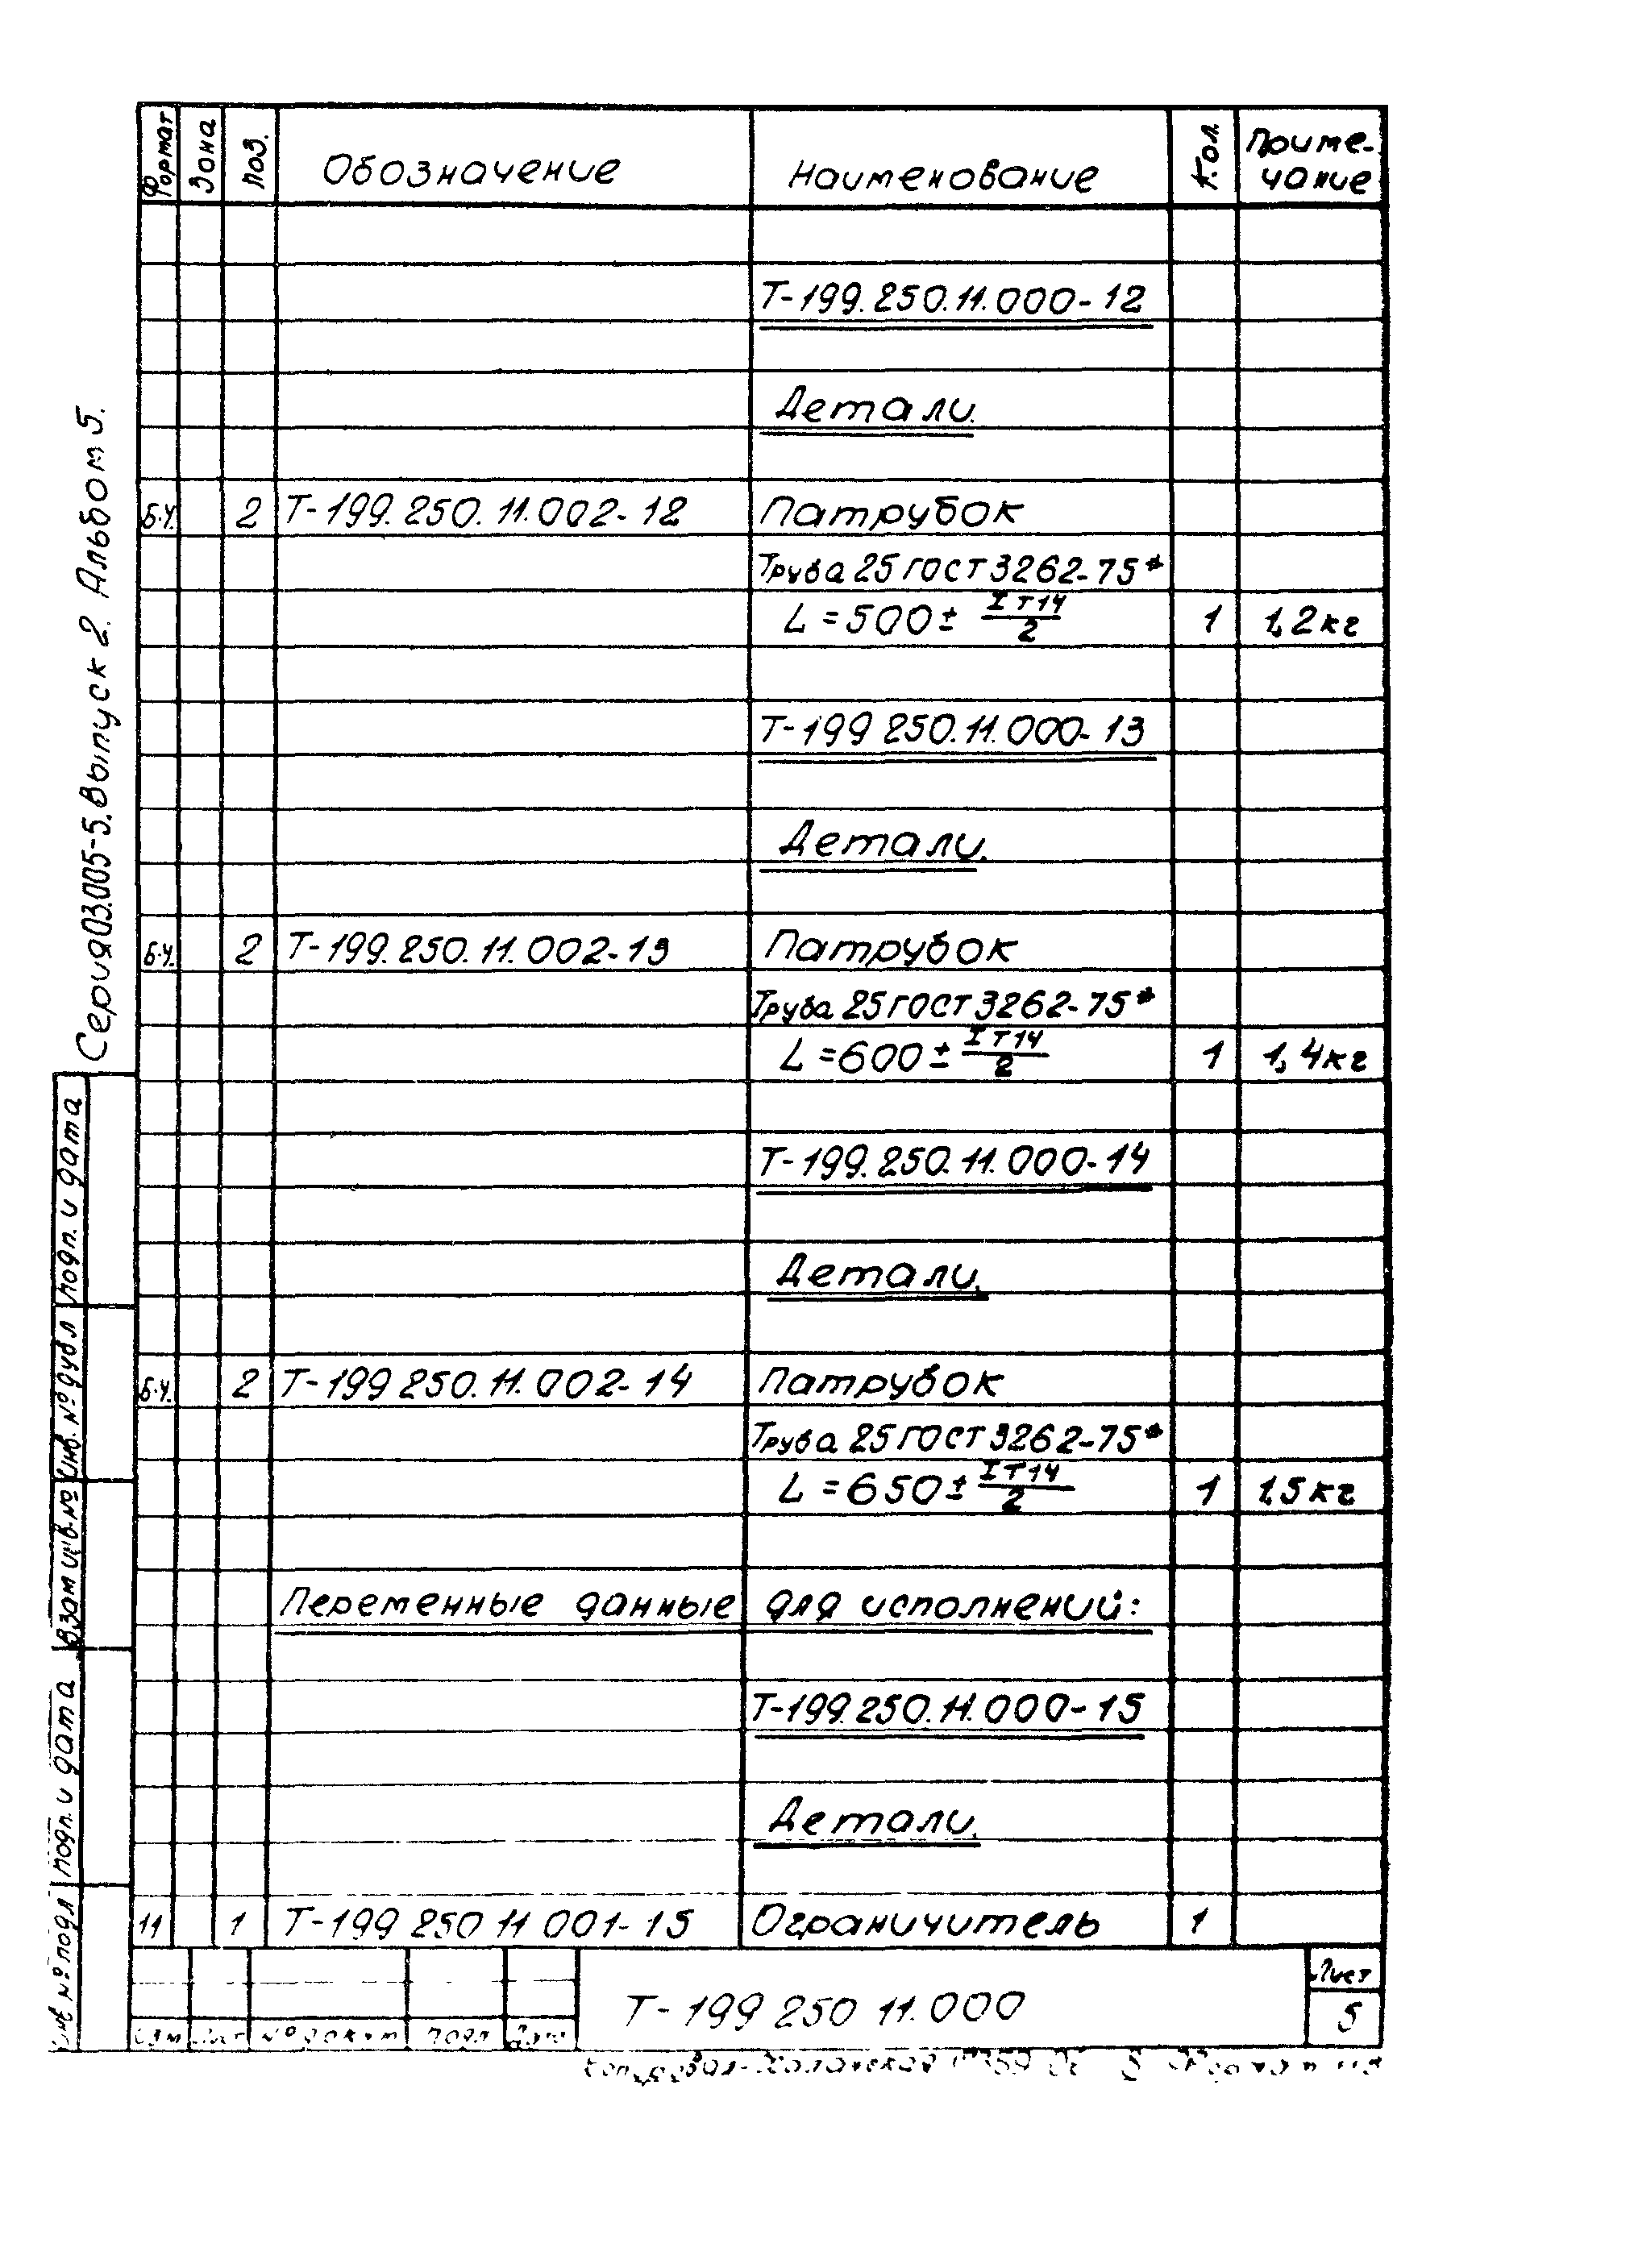 Формат Зона Поз. Обозначение Наименование Кол. Приме-
чание
Т-199.250.11.000-12
Детали.
Б.Ч. 2 Т-199.250.11.002-12 Патрубок
Труба 25 ГОСТ 3262-75*
L=500± IT14/2 1 1,2кг
Т-199 250.11.000-13
Детали.
Б.Ч. 2 Т-199.250.11.002-13 Патрубок
Труба 25 ГОСТ 3262-75*
L=600± IT14/2 1 1,4кг
Т-199.250.11.000-14
Детали.
Б.Ч. 2 Т-199 250.11.002-14 Патрубок
Труба 25 ГОСТ 3262-75*
L=650± IT14/2 1 1,5кг
Переменные данные для исполнений:
Т-199.250.11.000-15
Детали.
11 1 Т-199 250 11 001-15 Ограничитель 1
Изм Лист № докум Подп Дата
Т-199 250 11.000
Лист
5
Серия 03.005-5. Выпуск 2. Альбом 5.
Подп. и дата
Инв. № дубл
Взам инв. №
Подп. и дата
Инв № подл